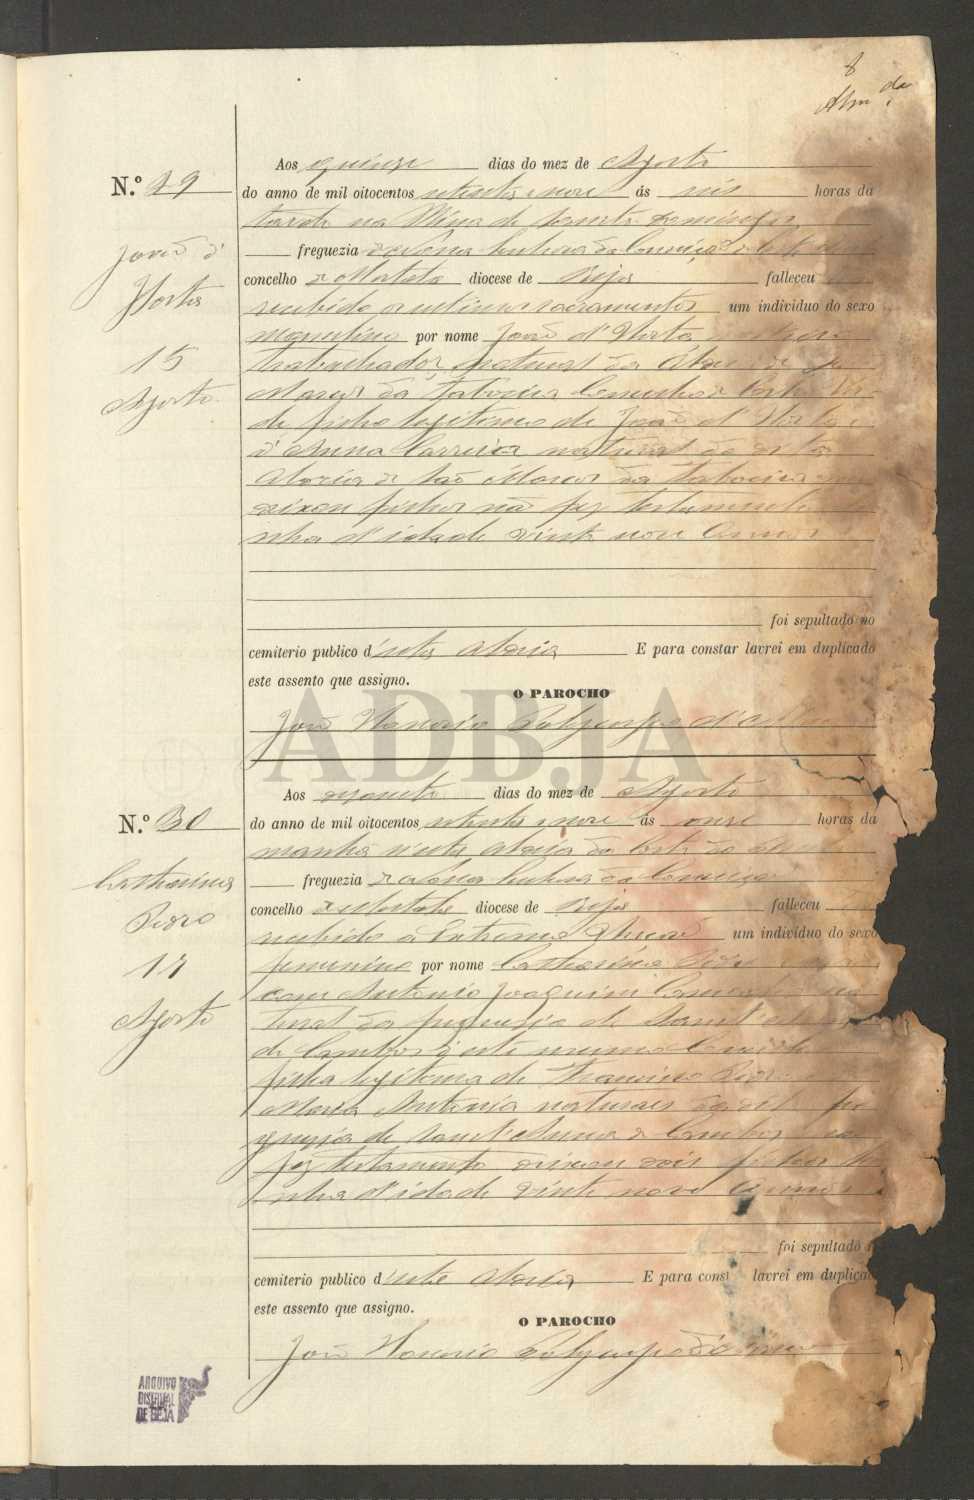 8
Alm da
N.º 29
João d'
Horta
15
Agosto
Aos quinze dias do mez de Agosto
do anno de mil oitocentos setenta e nove ás seis horas da
tarde na Mina de Santa Domingos
freguezia de Nossa Senhora da Conceição
concelho de Mertola diocese de Beja falleceu
recebido os ultimos sacramentos um individuo do sexo
masculino por nome João d'Horta
trabalhador, natural da Aldea de
Marcos da Tabueira Concelho de Castro Ver
de filho legitimo de João d'Horta e
d'Anna Carreira naturaes da dita
Aldeia de São Marcos da Tabueira
deixou filhos não fez testamento
nha d'idade vinte nove annos
foi sepultado no
cemiterio publico d'esta Aldeia E para constar lavrei em duplicado
este assento que assigno.
O PAROCHO
João Honorio
ADBJA
N.º 30
Catharina
Pedro
17
Agosto
Aos dezasete dias do mez de Agosto
do anno de mil oitocentos setenta e nove ás onze horas da
manhã n'esta Aldeia da Corte do
freguezia de Nossa Senhora da Conceição
concelho de Mertola diocese de Beja falleceu
recebido a Extrema Unção um individuo do sexo
femenino por nome Catharina Pedro
com Antonio Joaquim na
tural da freguezia de Sant'Anna
de Cambas d'este mesmo Concelho
filha legitima de Francisco Pedro
Maria Antonia naturaes da dita fre
guezia de Sant'Anna de Cambas não
fez testamento deixou dois filhos ti
nha d'idade vinte nove annos
foi sepultado n
cemiterio publico d'esta Aldeia E para const lavrei em duplicad
este assento que assigno.
O PAROCHO
João Honorio
ARQUIVO
DISTRITAL
DE BEJA